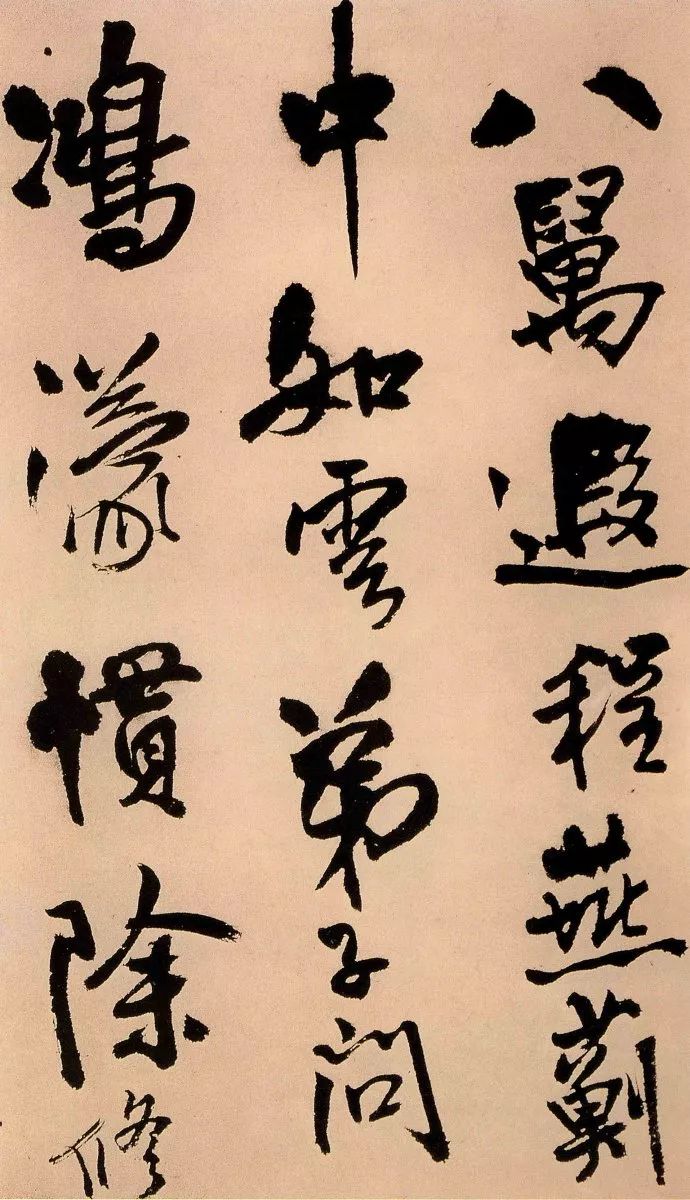 八萬遐程燕薊
中如雲弟子問
鴻濛慣除修